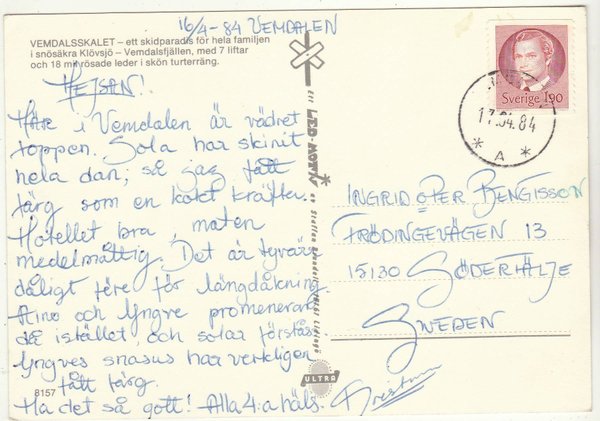 16/4-84 VEMDALEN
VEMDALSSKALET – ett skidparadis för hela familjen
i snösäkra Klövsjö – Vemdalsfjällen, med 7 liftar
och 18 mil rösade leder i skön turterräng.
HEJSAN!
Här i Vemdalen är vädret
toppen. Sola har skinit
hela dan, så jag fått
färg som en kokt kräfta.
Hotellet bra, maten
medelmåttig. Det är tyvärr
dåligt före för längdåkning.
Aino och Yngve promenerar
då istället, och solar förstås.
Yngves snasus har verkligen
fått färg.
Ha det så gott! Alla 4:a häls.
8157
ULTRA
Sverige 190
17.04.84
* A *
INGRID o PER BENGTSSON
FRÖDINGEVÄGEN 13
15130 SÖDERTÄLJE
SWEDEN